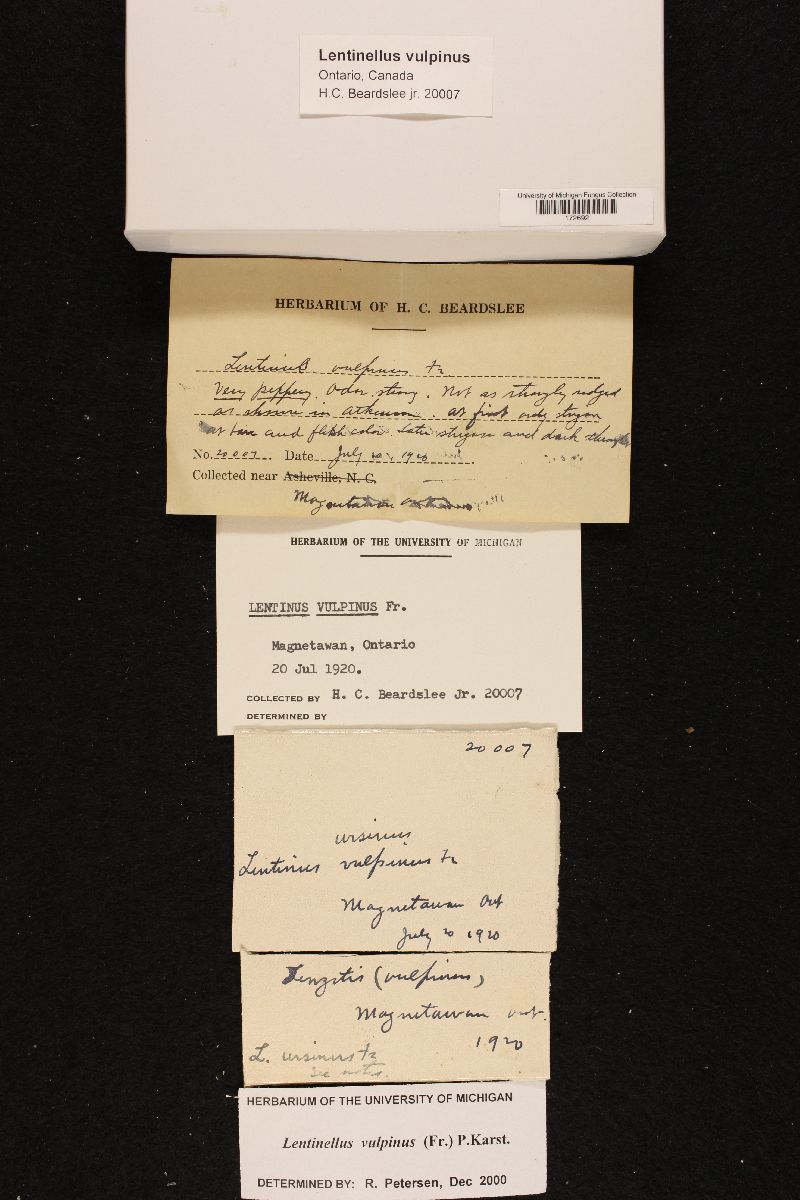 Lentinellus vulpinus
Ontario, Canada
H.C. Beardslee jr. 20007
University of Michigan Fungus Collection
172692
HERBARIUM OF H. C. BEARDSLEE
Lentinus vulpinus Fr
Very peppery. Odor strong. Not as strongly ridged
as shown in Atkinson. At first only strigose
at base and flesh color later strigose and dark
No. 20007 Date July 20, 1920
Collected near Asheville, N. C.
Magnetawan
HERBARIUM OF THE UNIVERSITY OF MICHIGAN
LENTINUS VULPINUS Fr.
Magnetawan, Ontario
20 Jul 1920.
COLLECTED BY H. C. Beardslee Jr. 20007
DETERMINED BY
20007
ursinus
Lentinus vulpinus Fr
Magnetawan Ont
July 20 1920
Lenzitis (vulpinus)
Magnetawan Ont.
1920
L. ursinus Fr
see notes.
HERBARIUM OF THE UNIVERSITY OF MICHIGAN
Lentinellus vulpinus (Fr.) P.Karst.
DETERMINED BY: R. Petersen, Dec 2000